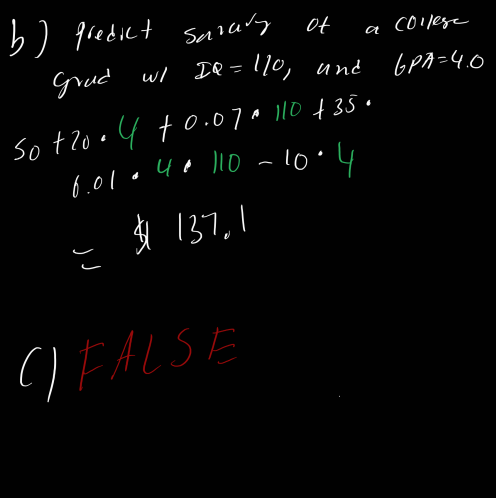 b) Predict salary of a college
grad w/ IQ = 110, and GPA = 4.0
50 + 20 · 4 + 0.07 · 110 + 35 ·
0.01 · 4 · 110 - 10 · 4
= $ 137.1
C) FALSE